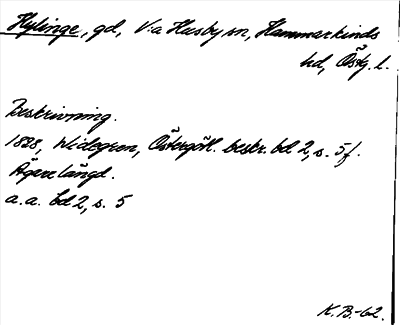 Hylinge, gd, V:a Husby sn, Hammarkinds
hd, Östg. l.
Beskrivning.
1828, Widegren, Östergötl. beskr. bd 2, s. 5 f.
Ägarelängd.
a.a. bd 2, s. 5
K.B.-62.